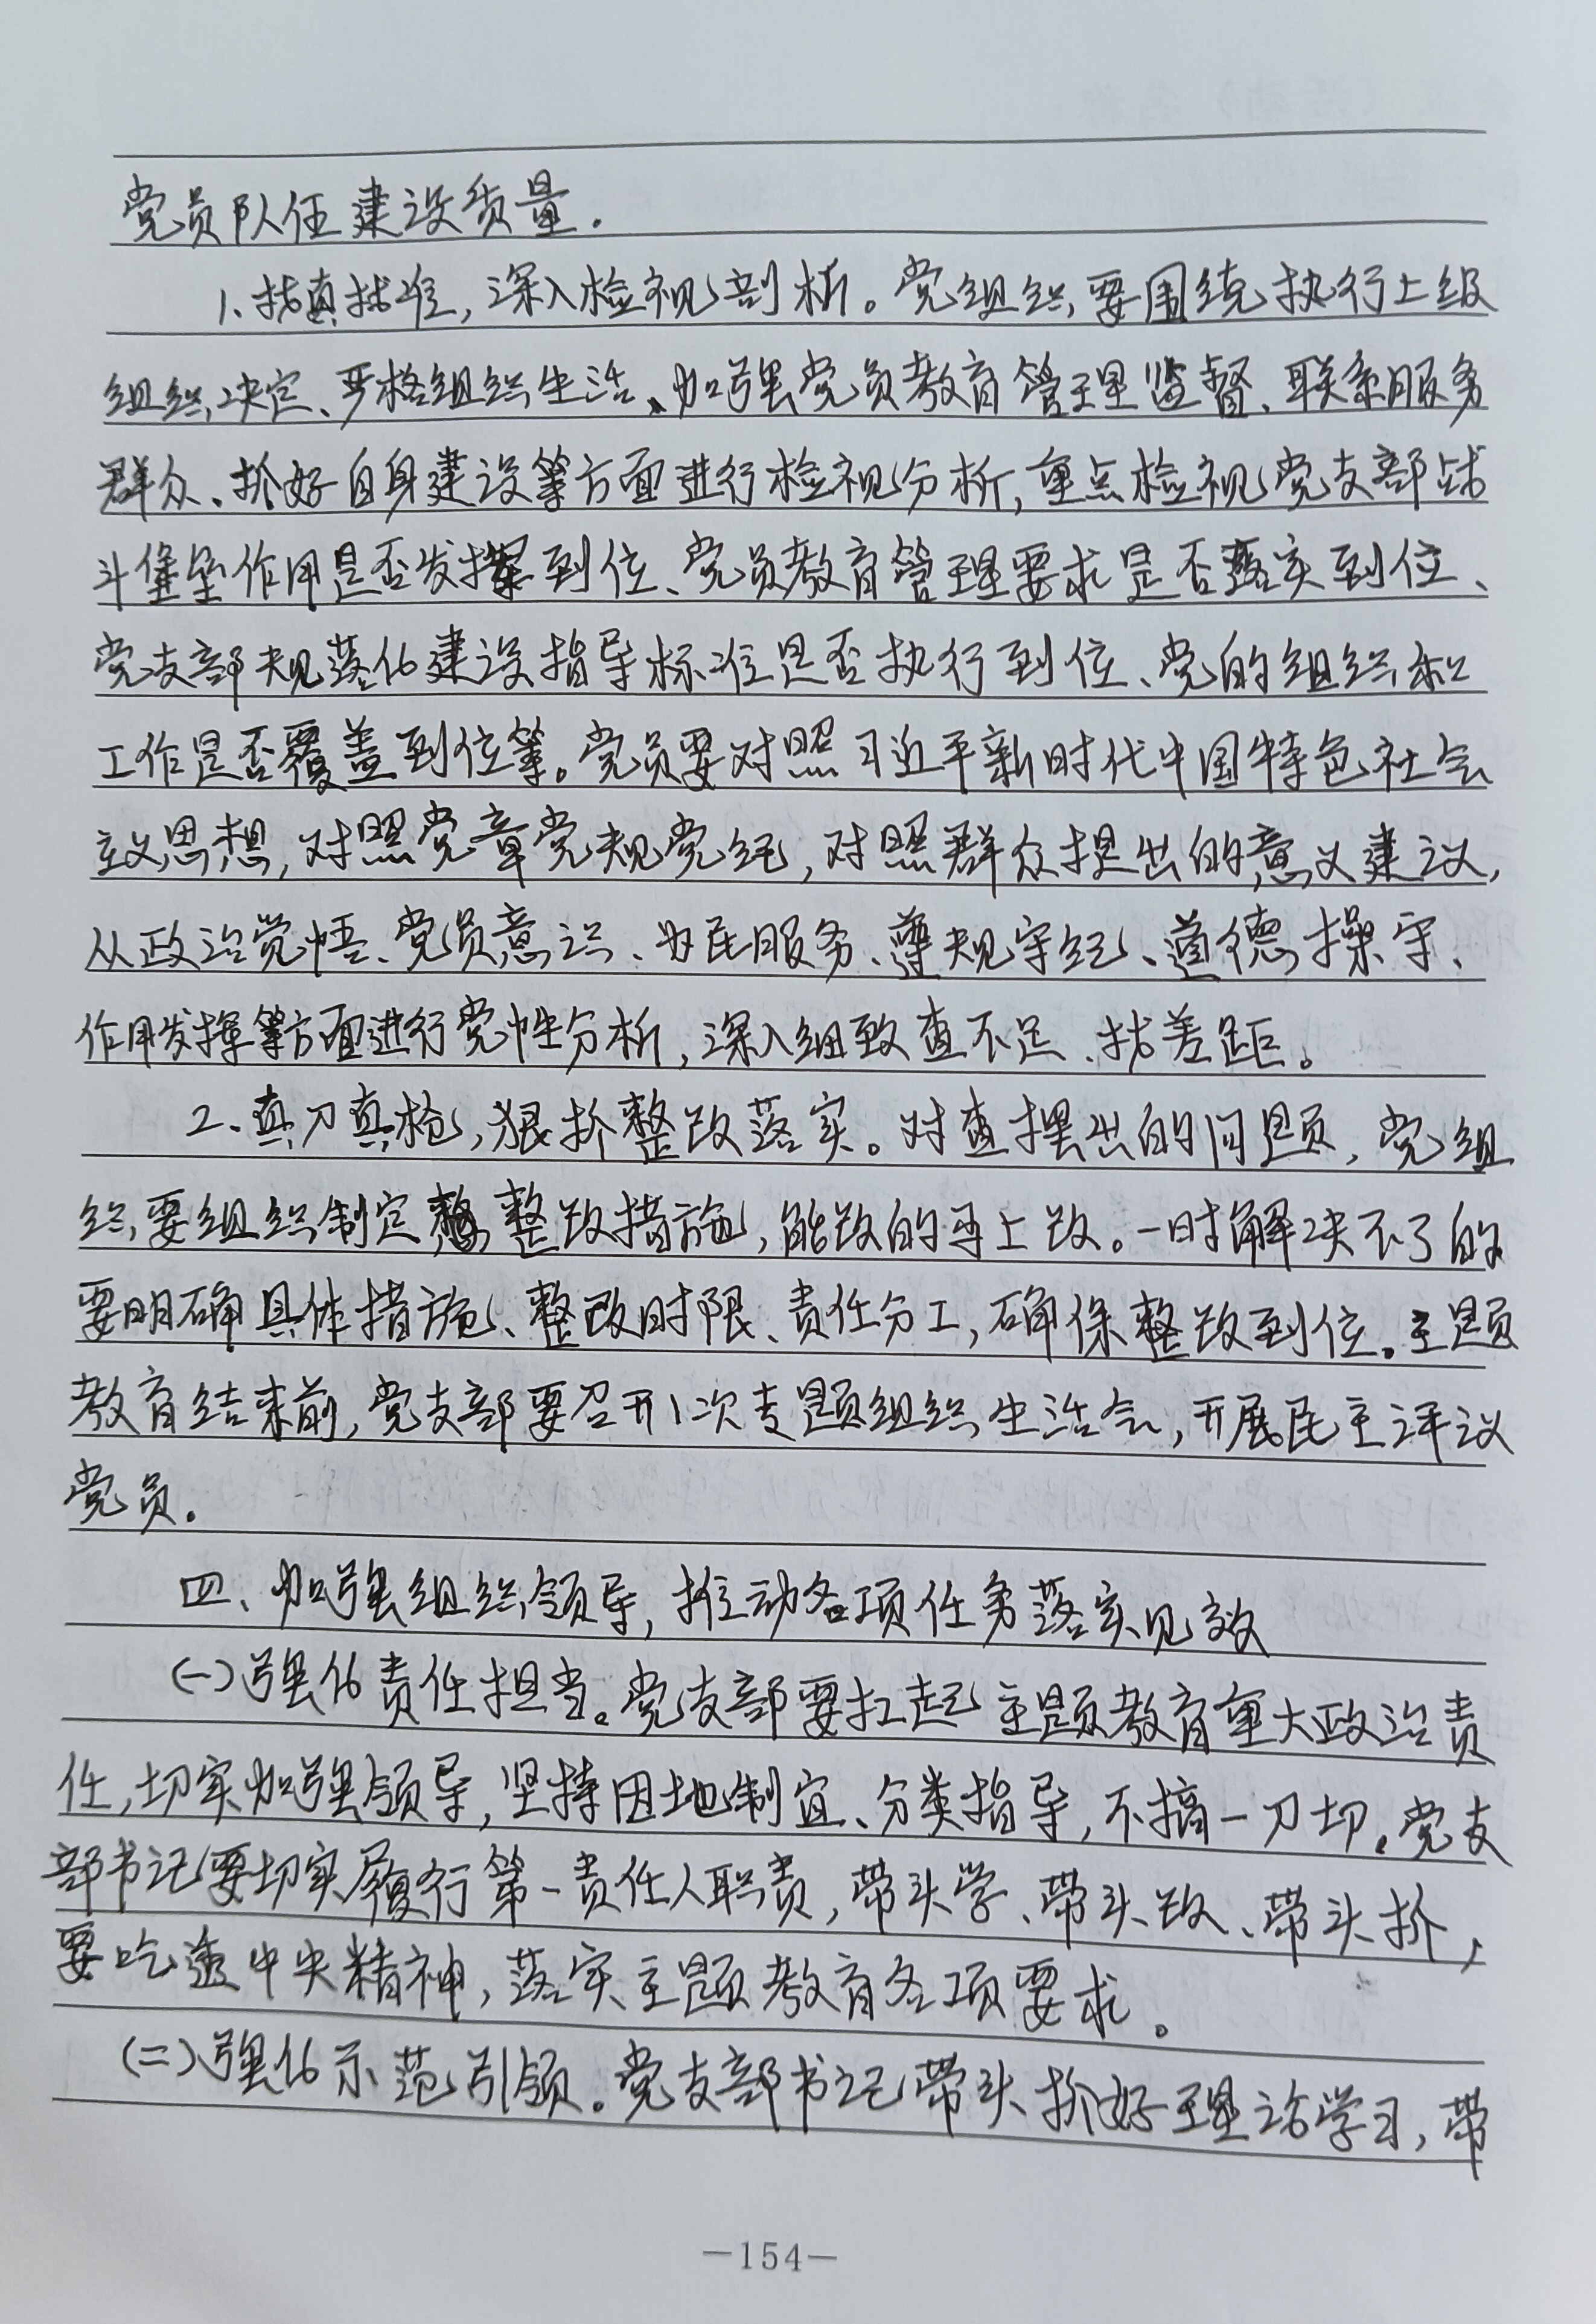 党员队伍建设质量.
1、找真找准，深入检视剖析。党组织要围绕执行上级
组织决定、严格组织生活、加强党员教育管理监督、联系服务
群众、抓好自身建设等方面进行检视分析，重点检视党支部战
斗堡垒作用是否发挥到位、党员教育管理要求是否落实到位、
党支部规范化建设指导标准是否执行到位、党的组织和
工作是否覆盖到位等。党员要对照习近平新时代中国特色社会
主义思想，对照党章党规党纪，对照群众提出的意义建议，
从政治觉悟、党员意识、为民服务、遵规守纪、道德操守、
作用发挥等方面进行党性分析，深入细致查不足、找差距。
2、真刀真枪，狠抓整改落实。对查摆出的问题，党组
织要组织制定整改措施，能改的马上改。一时解决不了的
要明确具体措施、整改时限、责任分工，确保整改到位。主题
教育结束前，党支部要召开1次专题组织生活会，开展民主评议
党员.
四、加强组织领导，推动各项任务落实见效
(一)强化责任担当。党支部要扛起主题教育重大政治责
任，切实加强领导，坚持因地制宜、分类指导，不搞一刀切。党支
部书记要切实履行第一责任人职责，带头学、带头改、带头抓，
要吃透中央精神，落实主题教育各项要求。
(二)强化示范引领。党支部书记带头抓好理论学习，带
—154—